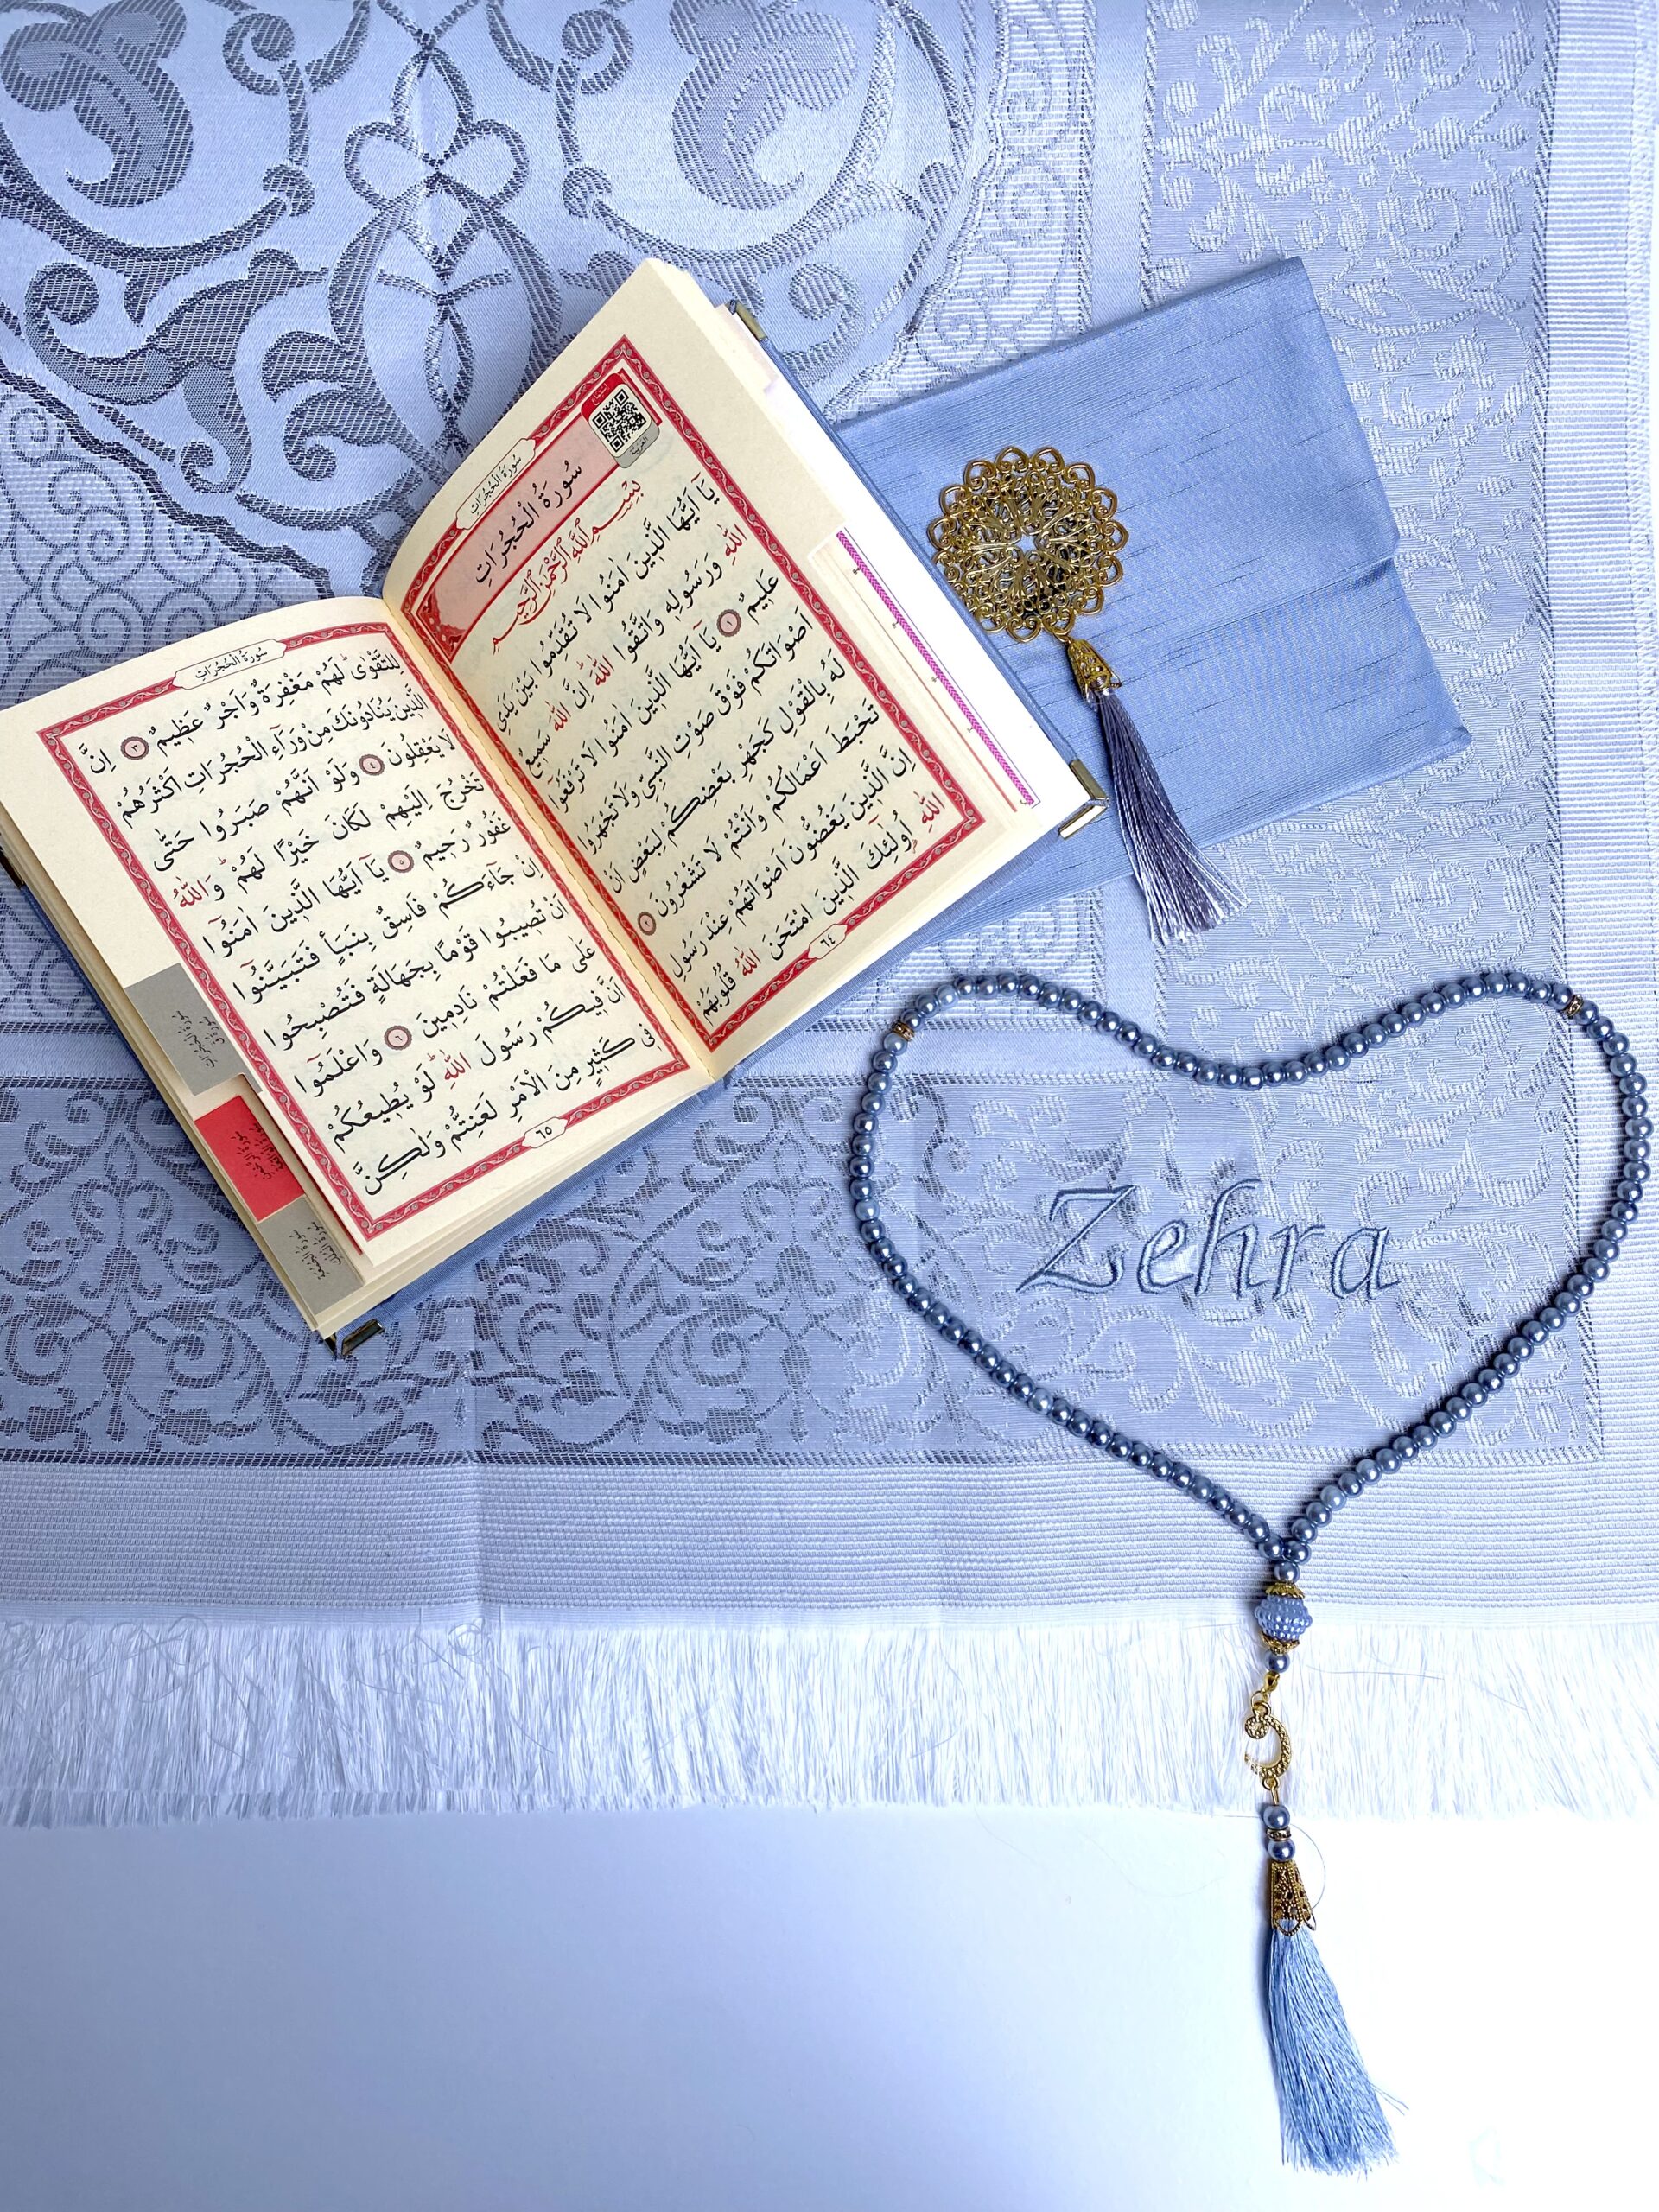 سُورَةُ الْحُجُرَاتِ
سُورَةُ الْحُجُرَاتِ
بِسْمِ اللّٰهِ الرَّحْمٰنِ الرَّحِيمِ
يَٓا اَيُّهَا الَّذِينَ اٰمَنُوا لَا تُقَدِّمُوا بَيْنَ يَدَيِ
اللّٰهِ وَرَسُولِهِ وَاتَّقُوا اللّٰهَ اِنَّ اللّٰهَ سَمِيعٌ
عَلِيمٌ ١ يَٓا اَيُّهَا الَّذِينَ اٰمَنُوا لَا تَرْفَعُٓوا
اَصْوَاتَكُمْ فَوْقَ صَوْتِ النَّبِيِّ وَلَا تَجْهَرُوا
لَهُ بِالْقَوْلِ كَجَهْرِ بَعْضِكُمْ لِبَعْضٍ اَنْ
تَحْبَطَ اَعْمَالُكُمْ وَاَنْتُمْ لَا تَشْعُرُونَ ٢
اِنَّ الَّذِينَ يَغُضُّونَ اَصْوَاتَهُمْ عِنْدَ رَسُولِ
اللّٰهِ اُو۬لٰٓئِكَ الَّذِينَ امْتَحَنَ اللّٰهُ قُلُوبَهُمْ
٦٤
سُورَةُ الْحُجُرَاتِ
لِلتَّقْوٰى لَهُمْ مَغْفِرَةٌ وَاَجْرٌ عَظِيمٌ ٣ اِنَّ
الَّذِينَ يُنَادُونَكَ مِنْ وَرَٓاءِ الْحُجُرَاتِ اَكْثَرُهُمْ
لَا يَعْقِلُونَ ٤ وَلَوْ اَنَّهُمْ صَبَرُوا حَتّٰى
تَخْرُجَ اِلَيْهِمْ لَكَانَ خَيْرًا لَهُمْ وَاللّٰهُ
غَفُورٌ رَحِيمٌ ٥ يَٓا اَيُّهَا الَّذِينَ اٰمَنُٓوا
اِنْ جَٓاءَكُمْ فَاسِقٌ بِنَبَأٍ فَتَبَيَّنُٓوا
اَنْ تُصِيبُوا قَوْمًا بِجَهَالَةٍ فَتُصْبِحُوا
عَلٰى مَا فَعَلْتُمْ نَادِمِينَ ٦ وَاعْلَمُٓوا
اَنَّ فِيكُمْ رَسُولَ اللّٰهِ لَوْ يُطِيعُكُمْ
فِى كَثِيرٍ مِنَ الْاَمْرِ لَعَنِتُّمْ وَلٰكِنَّ
٦٥
Zehra